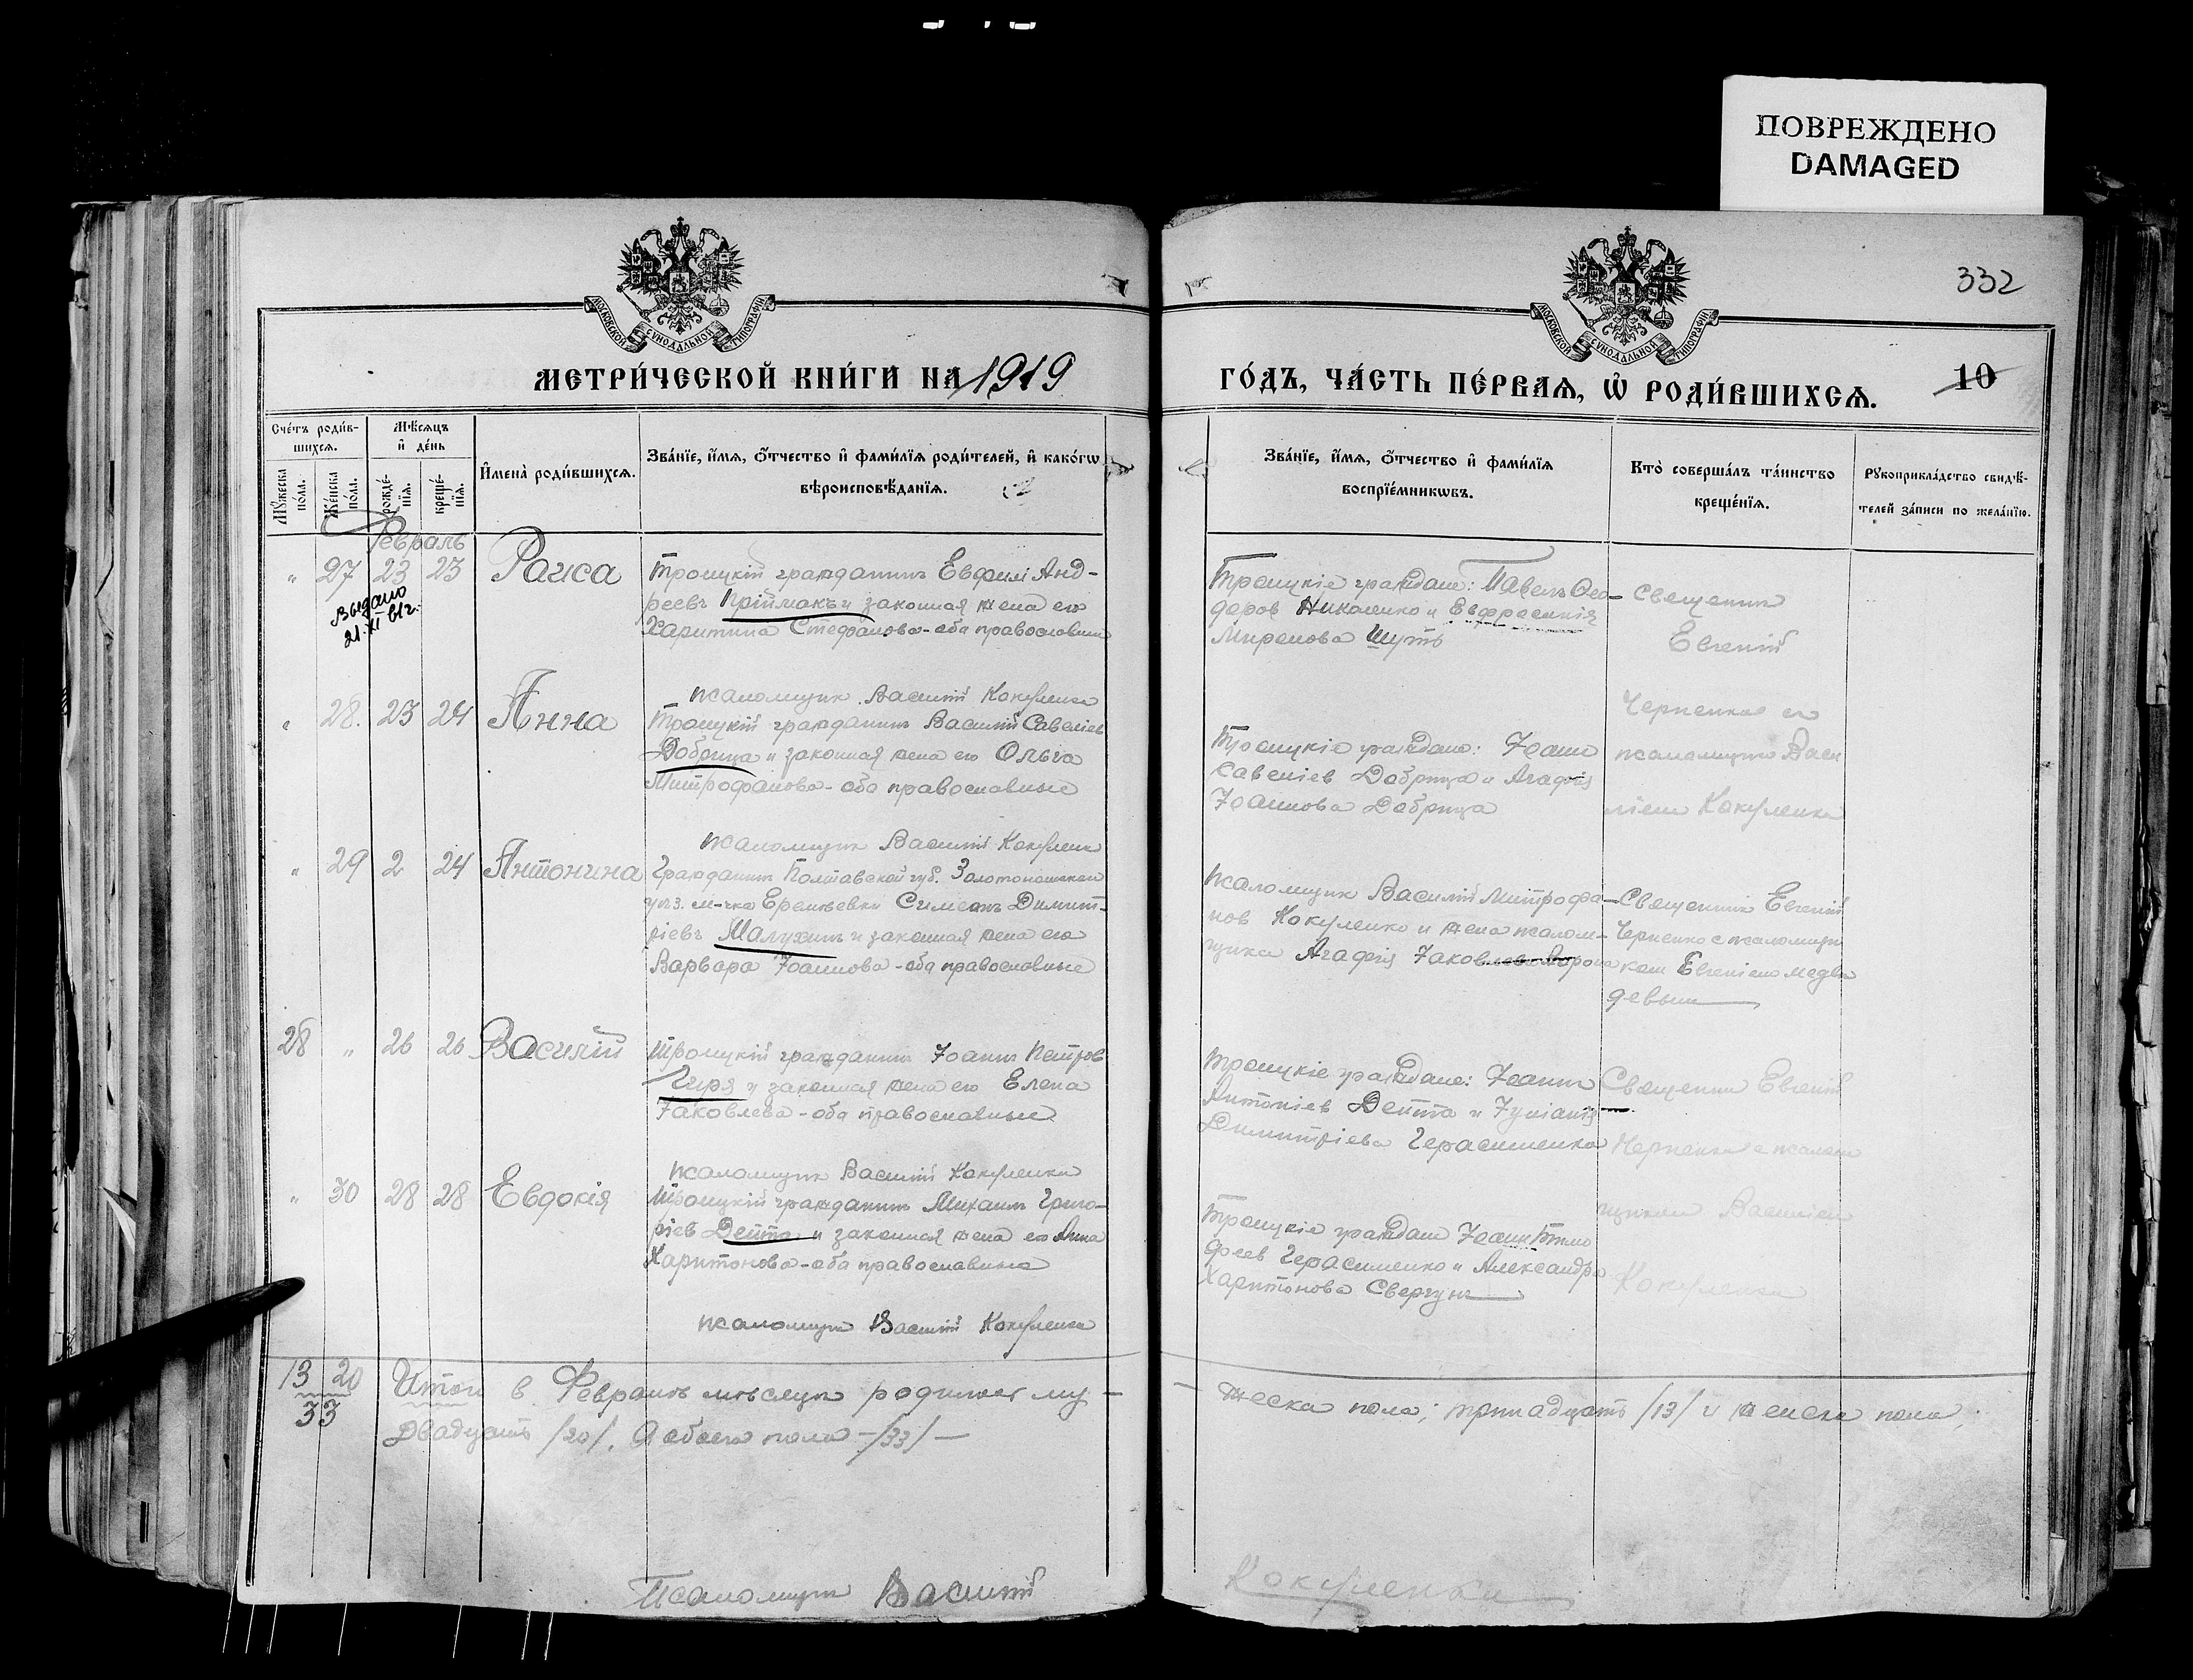 ПОВРЕЖДЕНО
DAMAGED
332
МОСКОВСКОЙ СѴНОДАЛЬНОЙ ТИПОГРАФІИ
МОСКОВСКОЙ СѴНОДАЛЬНОЙ ТИПОГРАФІИ
МЕТРИ́ЧЕСКОЙ КНИ́ГИ НА 1919
ГО́ДЪ, ЧА́СТЬ ПЕ́РВАѦ, Ѽ РОДИ́ВШИХСѦ.
10
Сче́тъ роди́в-
шихсѧ.
Мꙋ́жеска по́ла.
Же́нска по́ла.
Мѣ́сѧцъ
и҆ де́нь
рожде́-
нїѧ.
креще́-
нїѧ.
И҆мена̀ роди́вшихсѧ.
Зва́нїе, и҆́мѧ, ѻ҆́тчество и҆ фами́лїѧ роди́телей, и҆ како́гѡ
вѣроисповѣ́данїѧ.
Зва́нїе, и҆́мѧ, ѻ҆́тчество и҆ фами́лїѧ
воспрїе́мникѡвъ.
Кто̀ соверша́лъ та́инство
креще́нїѧ.
Рꙋкоприкла́дство свидѣ́-
телей за́писи по жела́нїю.
Февраль
" 27 23 23 Раиса
Выдано
21.XI 61г.
Троицкій гражданинъ Евфимі Анд-
реевъ Пріймакъ и законная жена его
Харитина Стефанова - оба православные
Троицкіе граждане: Павелъ Ѳео-
доров Николенко и Евфросинія
Миронова Шуть
Священник
Евгеній
Черненко со
псаломщико Васи
ліем Кокуленко
псаломщик Василій Кокуленко
" 28. 23 24 Анна
Троицкій гражданинъ Василій Савеліев
Добрица и законная жена его Ольга
Митрофанова - оба православные
Троицкіе граждане: Іоанн
Савеліев Добрица и Агафія
Іоаннова Добрица
псаломщик Василій Кокуленк
" 29 2 24 Антонина
Гражданинъ Полтавской губ. Золотоношскаго
уѣз. м-чка Еремѣевки Симеонъ Димит-
ріевъ Малухинъ и законная жена его
Варвара Іоаннова - оба православные
псаломщик Василій Митрофа-
нов Кокуленко и жена псалом-
щика Агафія Іаковлева
Священник Евгеній
Черненко с псаломщи
ком Евгеніем Медве
девым
28 " 26 26 Василій
Троицкій гражданинъ Іоаннъ Петров
Гиря и законная жена его Елена
Іаковлева - оба православные
Троицкіе граждане: Іоаннъ
Антоніев Дейта и Іуліанія
Димитріева Герасименко
Священник Евгеній
Черненко с псалом
щиком Василіем
Кокуленко
псаломщик Василій Кокуленко
" 30 28 28 Евдокія
Троицкій гражданинъ Михаилъ Григо-
ріев Дейта и законная жена его Анна
Харитонова - оба православные
Троицкіе граждане Іоанн Тимо
феев Герасименко и Александра
Харитонова Свергун
псаломщик Василій Кокуленко
13 20
33
Итого в Февралѣ мѣсяцѣ родилось му-
- жеска пола; тринадцать /13/ и женска пола;
двадцать /20/. А обоего пола - /33/ -
Псаломщик Василій
Кокуленко